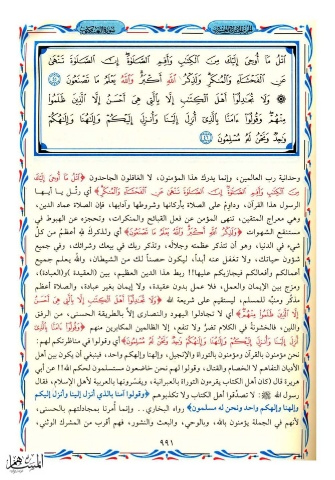 ٱتْلُ مَآ أُوحِىَ إِلَيْكَ مِنَ ٱلْكِتَٰبِ وَأَقِمِ ٱلصَّلَوٰةَ إِنَّ ٱلصَّلَوٰةَ تَنْهَىٰ
عَنِ ٱلْفَحْشَآءِ وَٱلْمُنكَرِ وَلَذِكْرُ ٱللَّهِ أَكْبَرُ وَٱللَّهُ يَعْلَمُ مَا تَصْنَعُونَ ٤٥
۞ وَلَا تُجَٰدِلُوٓا۟ أَهْلَ ٱلْكِتَٰبِ إِلَّا بِٱلَّتِى هِىَ أَحْسَنُ إِلَّا ٱلَّذِينَ ظَلَمُوا۟
مِنْهُمْ وَقُولُوٓا۟ ءَامَنَّا بِٱلَّذِىٓ أُنزِلَ إِلَيْنَا وَأُنزِلَ إِلَيْكُمْ وَإِلَٰهُنَا وَإِلَٰهُكُمْ
وَٰحِدٌ وَنَحْنُ لَهُۥ مُسْلِمُونَ ٤٦
وحدانية رب العالمين، وإنما يدرك هذا المؤمنون، لا الغافلون الجاحدون ﴿اتْلُ مَا أُوحِيَ إِلَيْكَ
مِنَ الْكِتَابِ وَأَقِمِ الصَّلَاةَ إِنَّ الصَّلَاةَ تَنْهَى عَنِ الْفَحْشَاءِ وَالْمُنْكَرِ﴾ أي رتّل يا أيها
الرسول هذا القرآن، وداوم على الصلاة بأركانها وشروطها وآدابها، فإن الصلاة عماد الدين،
وهي معراج المتقين، تنهى المؤمن عن فعل القبائح والمنكرات، وتحجزه عن الهبوط في
مستنقع الشهوات ﴿وَلَذِكْرُ اللَّهِ أَكْبَرُ وَاللَّهُ يَعْلَمُ مَا تَصْنَعُونَ﴾ أي ولذكرك لله أعظم من كل
شيء في الدنيا، وهو أن تتذكر عظمته وجلاله، وتذكر ربك في بيعك وشرائك، وفي جميع
شؤون حياتك، ولا تغفل عنه أبداً، ليكون حصناً لك من الشيطان، والله يعلم جميع
أعمالكم وأفعالكم فيجازيكم عليها!! ربط هذا الدين العظيم، بين (العقيدة) و(العبادة)،
ومزج بين الإيمان والعمل، فلا عمل بدون عقيدة، ولا إيمان بغير عبادة، والصلاة أعظم
مذكّر ومنبّه للمسلم، ليستقيم على شريعة الله ﴿وَلَا تُجَادِلُوا أَهْلَ الْكِتَابِ إِلَّا بِالَّتِي هِيَ أَحْسَنُ
إِلَّا الَّذِينَ ظَلَمُوا مِنْهُمْ﴾ أي لا تجادلوا اليهود والنصارى إلاّ بالطريقة الحسنى، من الرفق
واللين، فالخشونة في الكلام تضرّ ولا تنفع، إلا الظالمين المكابرين منهم ﴿وَقُولُوا آمَنَّا بِالَّذِي
أُنْزِلَ إِلَيْنَا وَأُنْزِلَ إِلَيْكُمْ وَإِلَهُنَا وَإِلَهُكُمْ وَاحِدٌ وَنَحْنُ لَهُ مُسْلِمُونَ﴾ أي وقولوا في مناظرتكم لهم:
نحن مؤمنون بالقرآن ومؤمنون بالتوراة والإنجيل، وإلهنا وإلهكم واحد، فينبغي أن يكون بين أهل
الأديان التفاهم لا الخصام والقتال، وقولوا لهم نحن خاضعون مستسلمون لحكم الله!! عن أبي
هريرة قال (كان أهل الكتاب يقرءون التوراة بالعبرانية، ويفسّرونها بالعربية لأهل الإسلام، فقال
رسول الله ﷺ: لا تصدّقوا أهل الكتاب ولا تكذبوهم ﴿وقولوا آمنا بالذي أنزل إلينا وأنزل إليكم
وإلهنا وإلهكم واحد ونحن له مسلمون﴾ رواه البخاري.. وإنما أُمرنا بمجادلتهم بالحسنى،
لأنهم في الجملة يؤمنون بالله، وبالوحي، والبعث والنشور، فهم أقرب من المشرك الوثني،
٩٩١